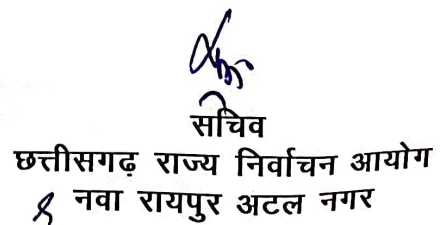 सचिव
छत्तीसगढ़ राज्य निर्वाचन आयोग
नवा रायपुर अटल नगर